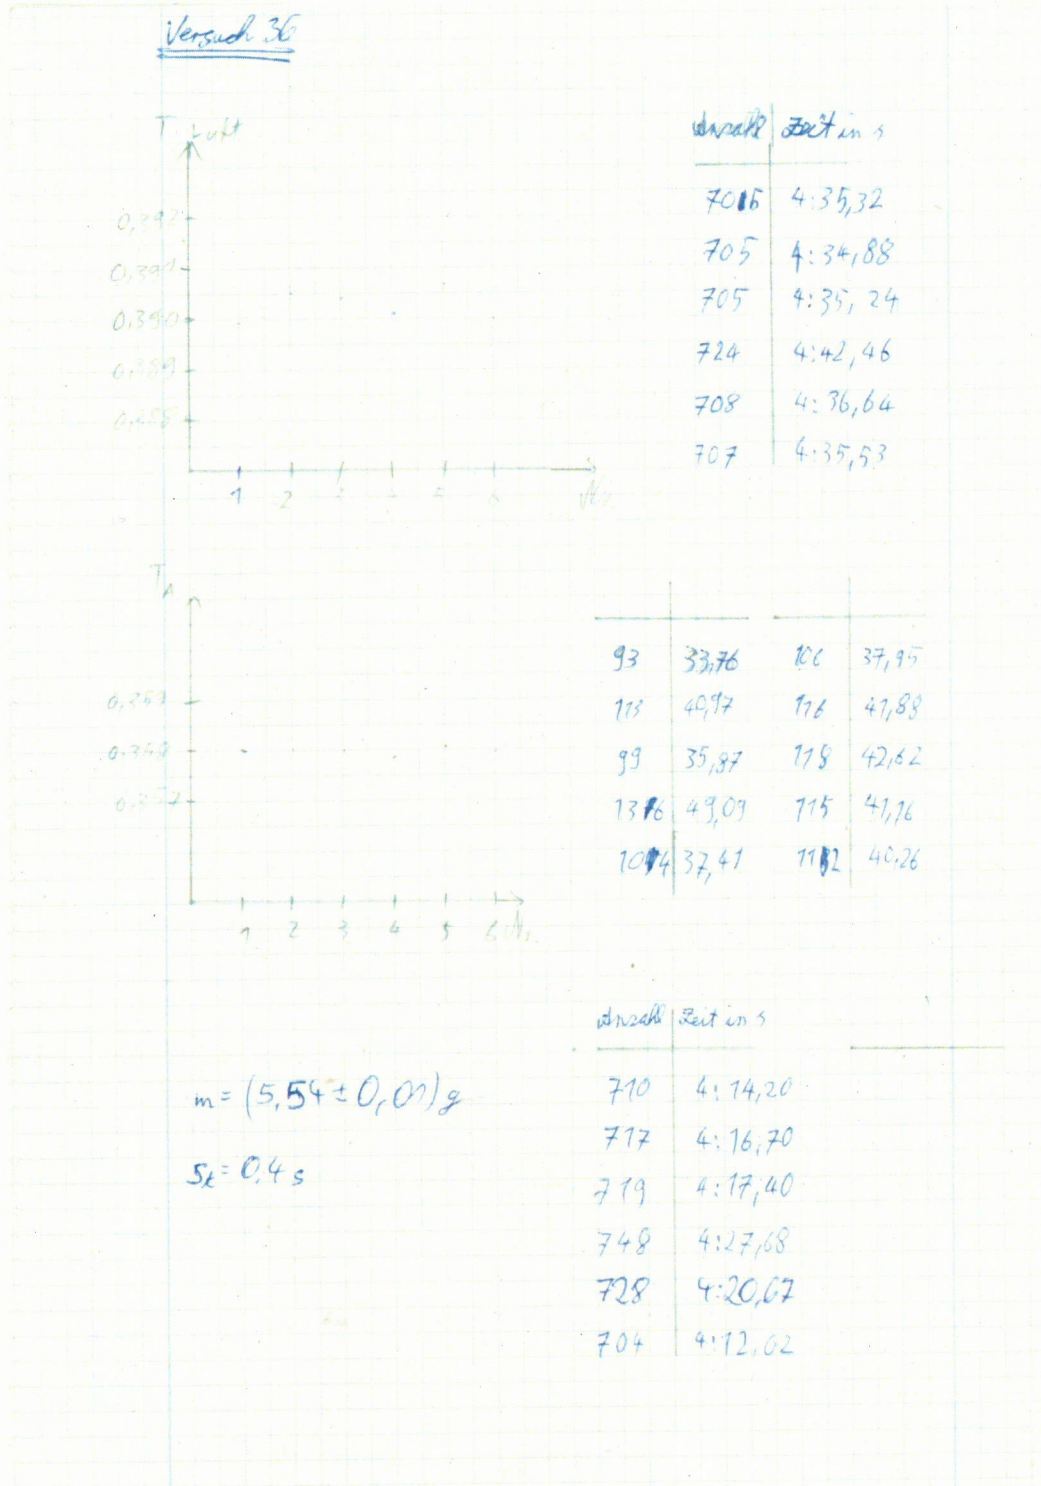 Versuch 36
T Luft
0,392
0,391
0,390
0,389
0,388
1 2 3 4 5 6
Anzahl Zeit in s
705 4:35,32
705 4:34,88
705 4:35,24
724 4:42,46
708 4:36,64
707 4:35,53
T A
0,359
0,358
0,357
1 2 3 4 5 6
93 33,76 106 37,95
113 40,97 116 41,88
99 35,87 118 42,62
136 49,09 115 41,76
104 37,41 112 40,26
Anzahl Zeit in s
710 4:14,20
717 4:16,70
719 4:17,40
748 4:27,68
728 4:20,67
704 4:12,02
m = (5,54 ± 0,01) g
St = 0,4 s